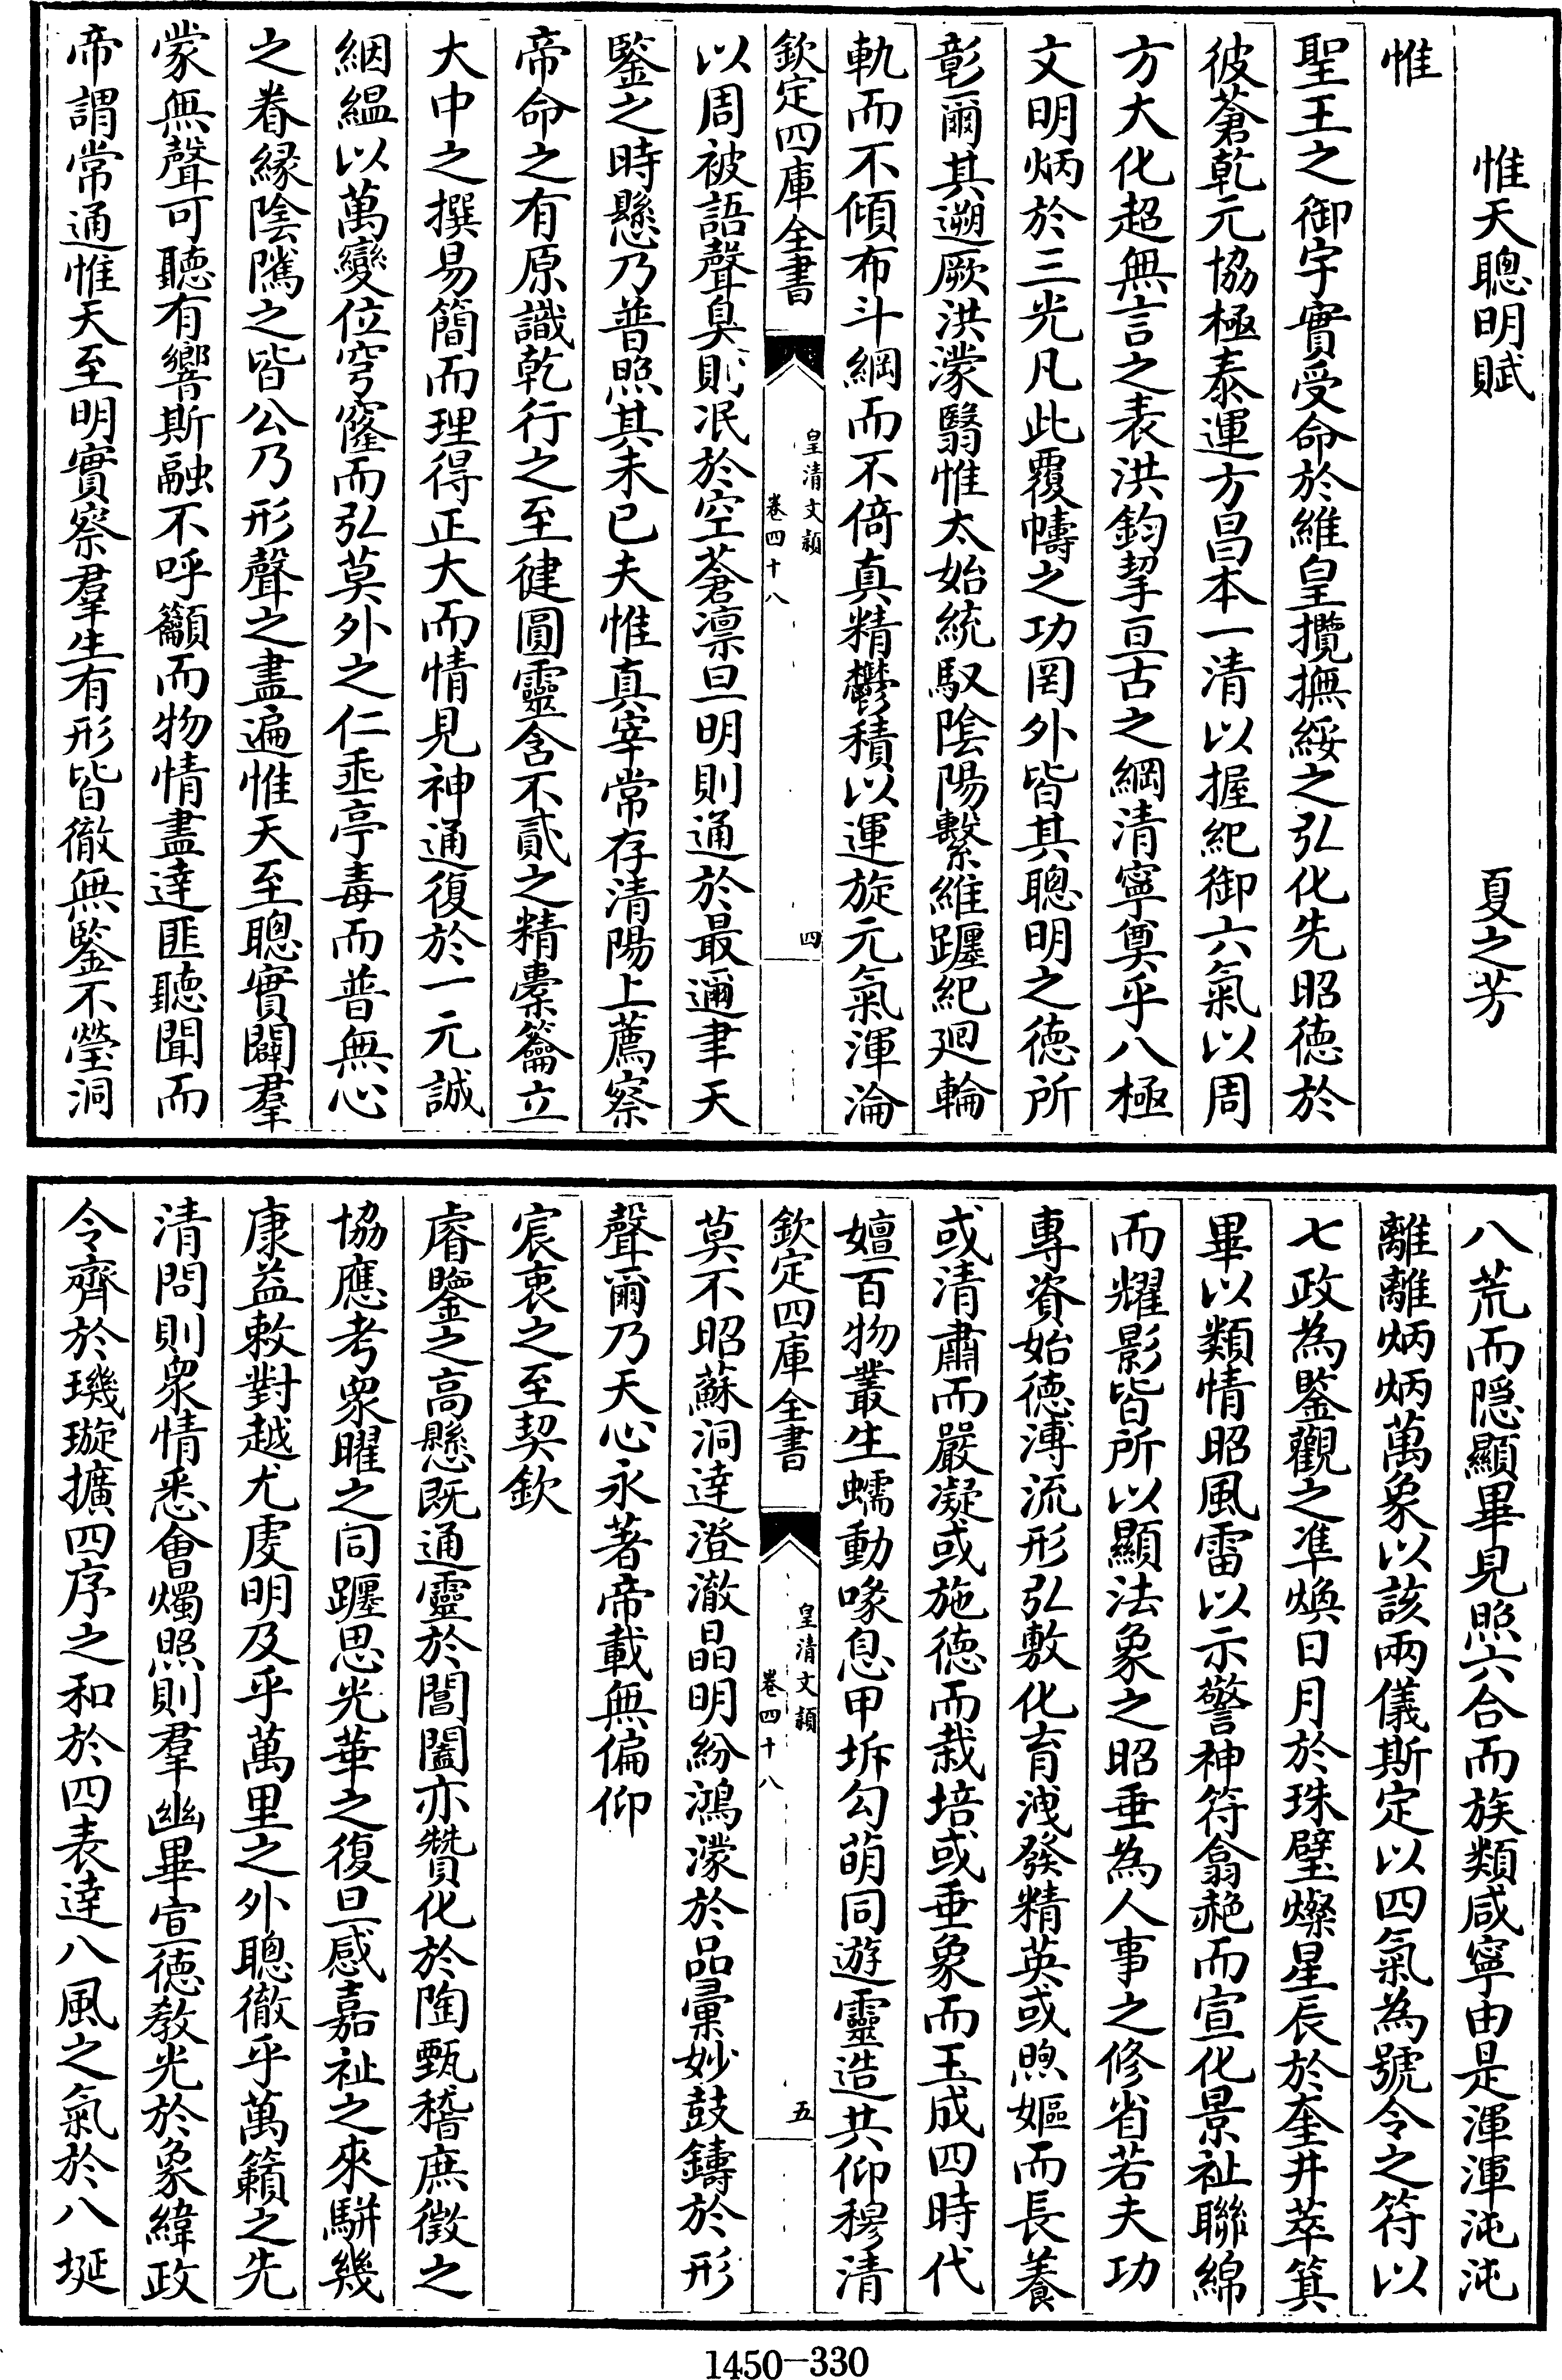 惟天聰明賦 夏之芳
惟
聖王之御宇實受命於維皇攬撫綏之弘化先昭德於
彼蒼乾元協極泰運方昌本一清以握紀御六氣以周
方大化超無言之表洪鈞挈亘古之綱清寧奠乎八極
文明炳於三光凡此覆幬之功罔外皆其聰明之德所
彰爾其遡厥洪濛翳惟太始統馭陰陽繫維躔紀廻輪
軌而不傾布斗綱而不倚真精鬱積以運旋元氣渾淪
欽定四庫全書 皇清文穎 卷四十八 四
以周被語聲臭則泯於空蒼凛旦明則通於最邇聿天
鑒之時懸乃普照其未已夫惟真宰常存清陽上薦察
帝命之有原識乾行之至健圓靈含不貳之精橐籥立
大中之撰易簡而理得正大而情見神通復於一元誠
絪緼以萬變位穹窿而弘莫外之仁乖亭毒而普無心
之眷緣陰隲之皆公乃形聲之盡遍惟天至聰實闢羣
蒙無聲可聽有響斯融不呼籲而物情盡達匪聽聞而
帝謂常通惟天至明實察羣生有形皆徹無鑒不瑩洞
八荒而隱顯畢見照六合而族類咸寧由是渾渾沌沌
離離炳炳萬象以該兩儀斯定以四氣為號令之符以
七政為鑒觀之凖煥日月於珠璧燦星辰於奎井萃箕
畢以類情昭風雷以示警神符翕赩而宣化景祉聯綿
而耀影皆所以顯法象之昭垂為人事之修省若夫功
專資始德溥流形弘敷化育洩發精英或煦嫗而長養
或清肅而嚴凝或施德而栽培或垂象而玉成四時代
嬗百物叢生蠕動喙息甲坼勾萌同遊靈造共仰穆清
欽定四庫全書 皇清文穎 卷四十八 五
莫不昭蘇洞達澄澈晶明紛鴻濛於品彙妙鼓鑄於形
聲爾乃天心永著帝載無偏仰
宸衷之至契欽
睿鑒之高懸既通靈於閶闔亦贊化於陶甄稽庶徵之
協應考眾曜之同躔思光華之復旦感嘉祉之來駢幾
康益敕對越尤虔明及乎萬里之外聰徹乎萬籟之先
清問則眾情悉會燭照則羣幽畢宣德教光於象緯政
令齊於璣璇擴四序之和於四表達八風之氣於八埏
1450-330